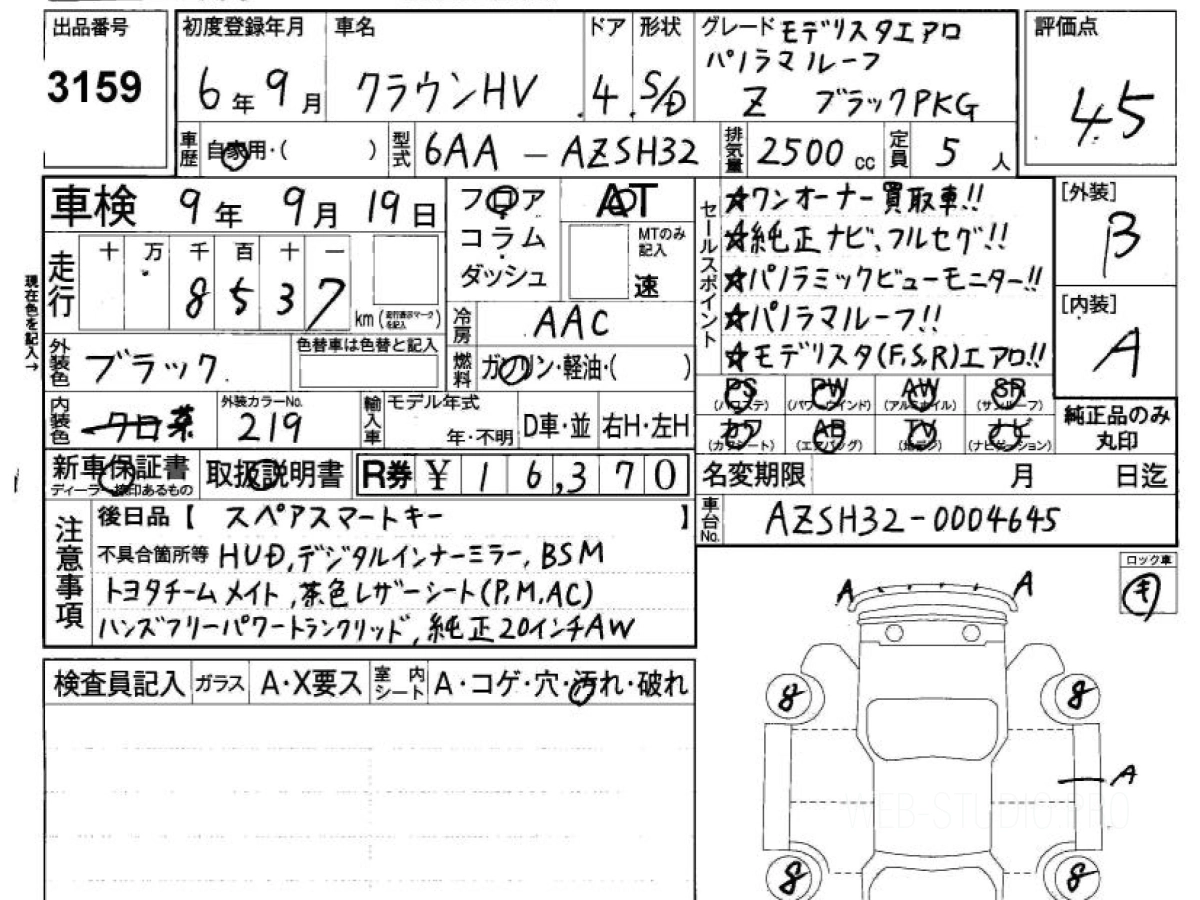 出品番号 初度登録年月 車名 ドア 形状 グレード モデリスタエアロ 評価点
パノラマルーフ
3159 6年9月 クラウンHV 4 S/D Z ブラックPKG 4.5
車歴 自家用・( ) 型式 6AA - AZSH32 排気量 2500 cc 定員 5 人
車検 9年 9月 19日 フロア AT セールスポイント ☆ワンオーナー買取車!! [外装]
コラム MTのみ記入 ☆純正ナビ、フルセグ!! B
ダッシュ 速 ☆パノラミックビューモニター!!
現在色を記入→ 走行 十 万 千 百 十 一 [内装]
8537 km (走行表示マークを記入) 冷房 AAC ☆パノラマルーフ!! A
外装色 ブラック 色替車は色替と記入 燃料 ガソリン・軽油・( ) ☆モデリスタ(F,S,R)エアロ!!
PS (パワステ) PW (パワーウインド) AW (アルミホイル) SR (サンルーフ)
内装色 クロ 茶 外装カラーNo. 219 輸入車 モデル年式 年・不明 D車・並 右H・左H
カワ (カワシート) AB (エアバッグ) TV (地デジ) ナビ (ナビゲーション) 純正品のみ丸印
新車保証書 ディーラー捺印あるもの 取扱説明書 R券 ¥ 16,370 名変期限 月 日迄
注意事項 後日品【 スペアスマートキー 】 車台No. AZSH32-0004645
不具合箇所等 HUD,デジタルインナーミラー,BSM
トヨタチームメイト,茶色レザーシート(P,M,AC)
ハンズフリーパワートランクリッド,純正20インチAW
ロック車
キ
A A
検査員記入 ガラス A・X要ス 室内シート A・コゲ・穴・汚れ・破れ
8 8
A
WEB-STUDIO.PRO
8 8